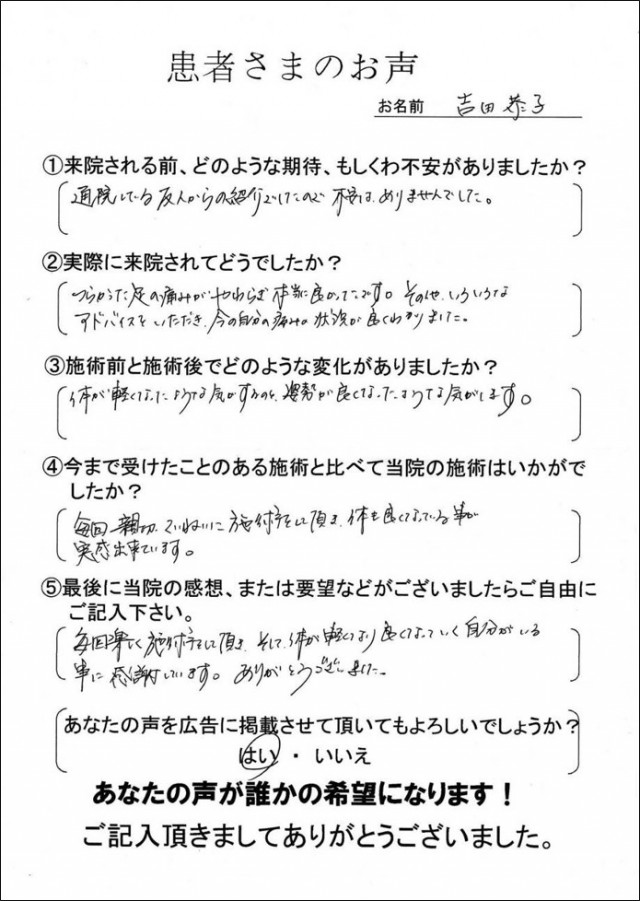 患者さまのお声
お名前 吉田 恭子
①来院される前、どのような期待、もしくわ不安がありましたか？
通院している友人からの紹介でしたので 不安は、ありませんでした。
②実際に来院されてどうでしたか？
つらかった足の痛みがやわらぎ 本当に良かったです。その他、いろいろな
アドバイスをいただき、今の自分の痛みの状況が良くわかりました。
③施術前と施術後でどのような変化がありましたか？
体が軽くなったような気がするのと、姿勢が良くなったような気がします。
④今まで受けたことのある施術と比べて当院の施術はいかがで
したか？
毎回 親切、ていねいに施術をして頂き、体も良くなっている事が
実感出来ています。
⑤最後に当院の感想、または要望などがございましたらご自由に
ご記入下さい。
毎回楽しく施術をして頂き、そして、体が軽くなり良くなっていく自分がいる
事に感謝しています。ありがとうございました。
あなたの声を広告に掲載させて頂いてもよろしいでしょうか？
はい ・ いいえ
あなたの声が誰かの希望になります！
ご記入頂きましてありがとうございました。